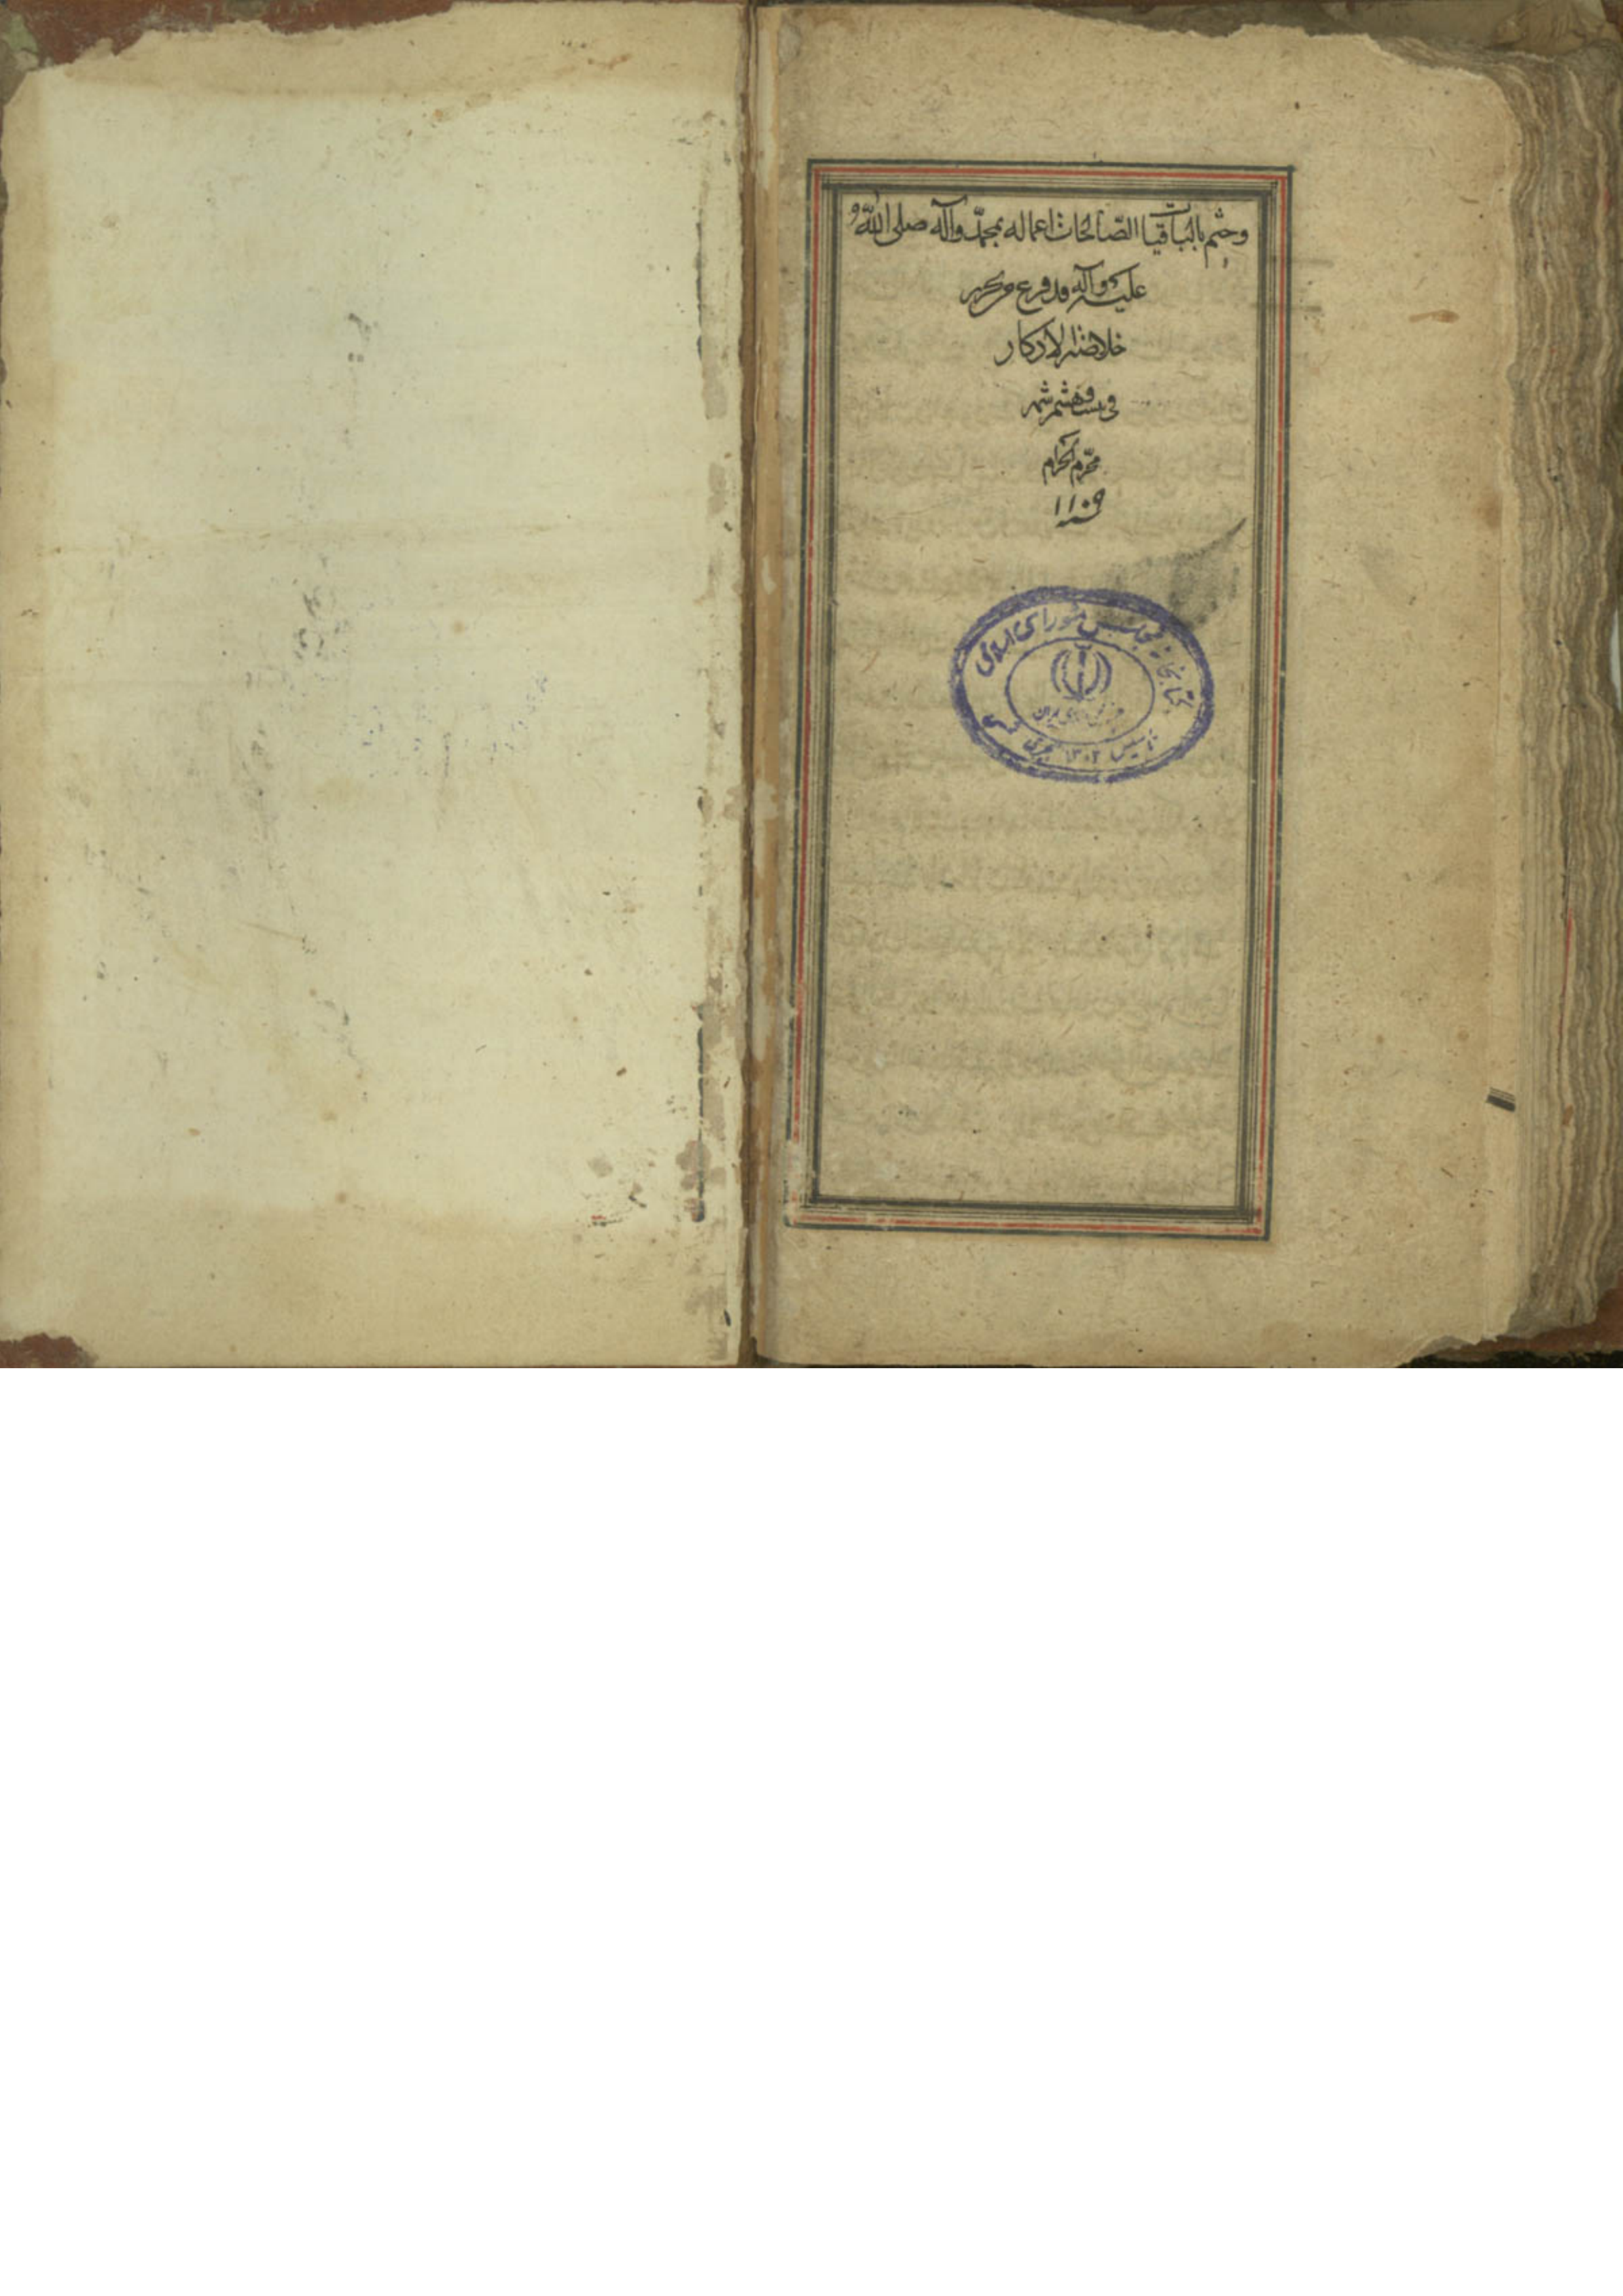 وختم بالباقیات الصّالحات اعماله بمحمّد وآله صلی اللّه و
علیه وآله قد فرغ من تحریر
خلاصة الاذکار
فی بیست و هشتم شهر
محرّم الحرام
سنه ۱۱۰۹
کتابخانه مجلس شورای اسلامی
تاسیس ۱۳۰۲ هجری شمسی